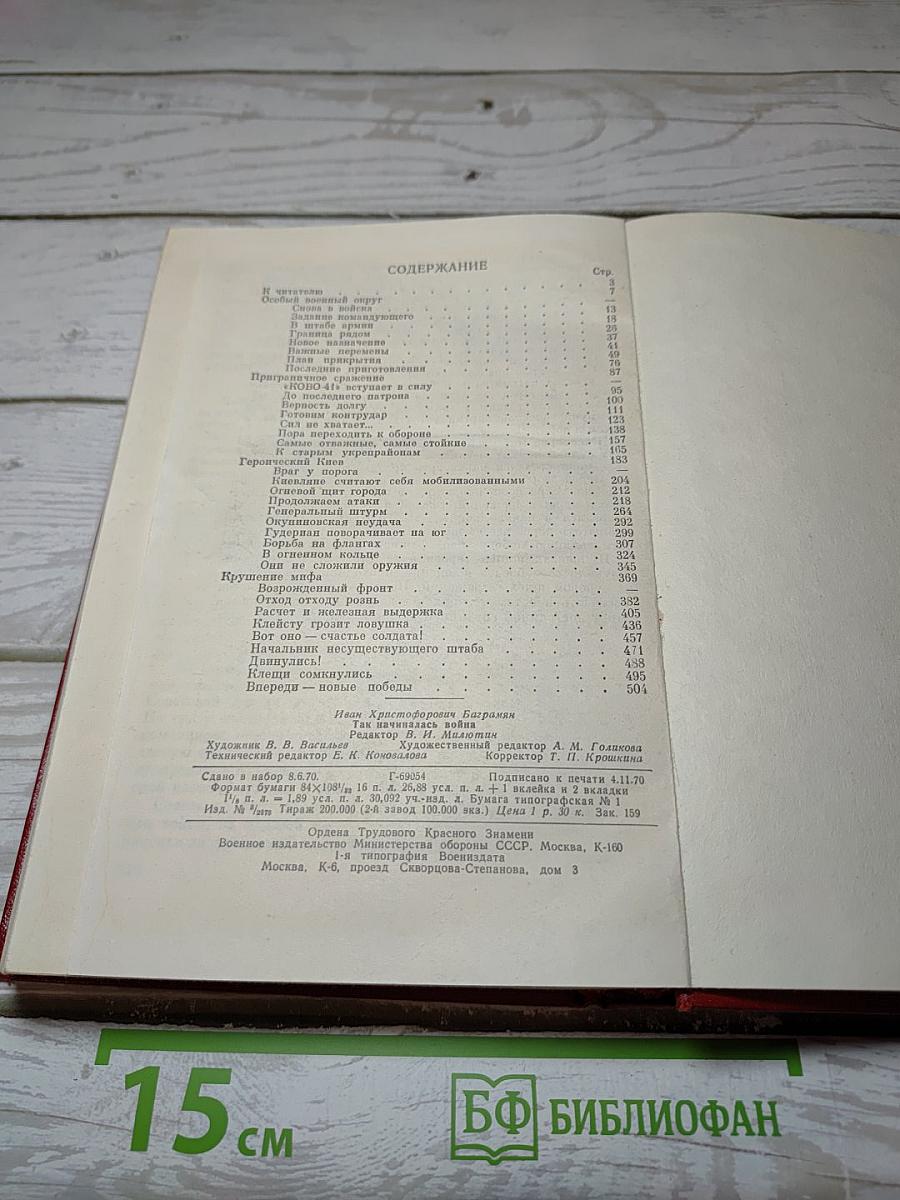 СОДЕРЖАНИЕ
Стр.
К читателю . . . 3
Особый военный округ . . . 7
Снова в войска . . . —
Задание командующего . . . 13
В штабе армии . . . 18
Граница рядом . . . 26
Новое назначение . . . 37
Важные перемены . . . 41
План прикрытия . . . 49
Последние приготовления . . . 76
Приграничное сражение . . . 87
«КОВО-41» вступает в силу . . . —
До последнего патрона . . . 95
Верность долгу . . . 100
Готовим контрудар . . . 111
Сил не хватает... . . . 123
Пора переходить к обороне . . . 138
Самые отважные, самые стойкие . . . 157
К старым укрепрайонам . . . 165
Героический Киев . . . 183
Враг у порога . . . —
Киевляне считают себя мобилизованными . . . 204
Огневой щит города . . . 212
Продолжаем атаки . . . 218
Генеральный штурм . . . 264
Окуниновская неудача . . . 292
Гудериан поворачивает на юг . . . 299
Борьба на флангах . . . 307
В огненном кольце . . . 324
Они не сложили оружия . . . 345
Крушение мифа . . . 369
Возрожденный фронт . . . —
Отход отходу рознь . . . 382
Расчет и железная выдержка . . . 405
Клейсту грозит ловушка . . . 436
Вот оно — счастье солдата! . . . 457
Начальник несуществующего штаба . . . 471
Двинулись! . . . 488
Клещи сомкнулись . . . 495
Впереди — новые победы . . . 504
Иван Христофорович Баграмян
Так начиналась война
Редактор В. И. Милютин
Художник В. В. Васильев Художественный редактор А. М. Голикова
Технический редактор Е. К. Коновалова Корректор Т. П. Крошкина
Сдано в набор 8.6.70. Г-69054 Подписано к печати 4.11.70
Формат бумаги 84×108¹/₃₂ 16 п. л. 26,88 усл. п. л. + 1 вклейка и 2 вкладки
1¹/₈ п. л. = 1,89 усл. п. л. 30,092 уч.-изд. л. Бумага типографская № 1
Изд. № ⁸/₂₀₇₉ Тираж 200.000 (2-й завод 100.000 экз.) Цена 1 р. 30 к. Зак. 159
Ордена Трудового Красного Знамени
Военное издательство Министерства обороны СССР. Москва, К-160
1-я типография Воениздата
Москва, К-6, проезд Скворцова-Степанова, дом 3
15 см
БФ БИБЛИОФАН